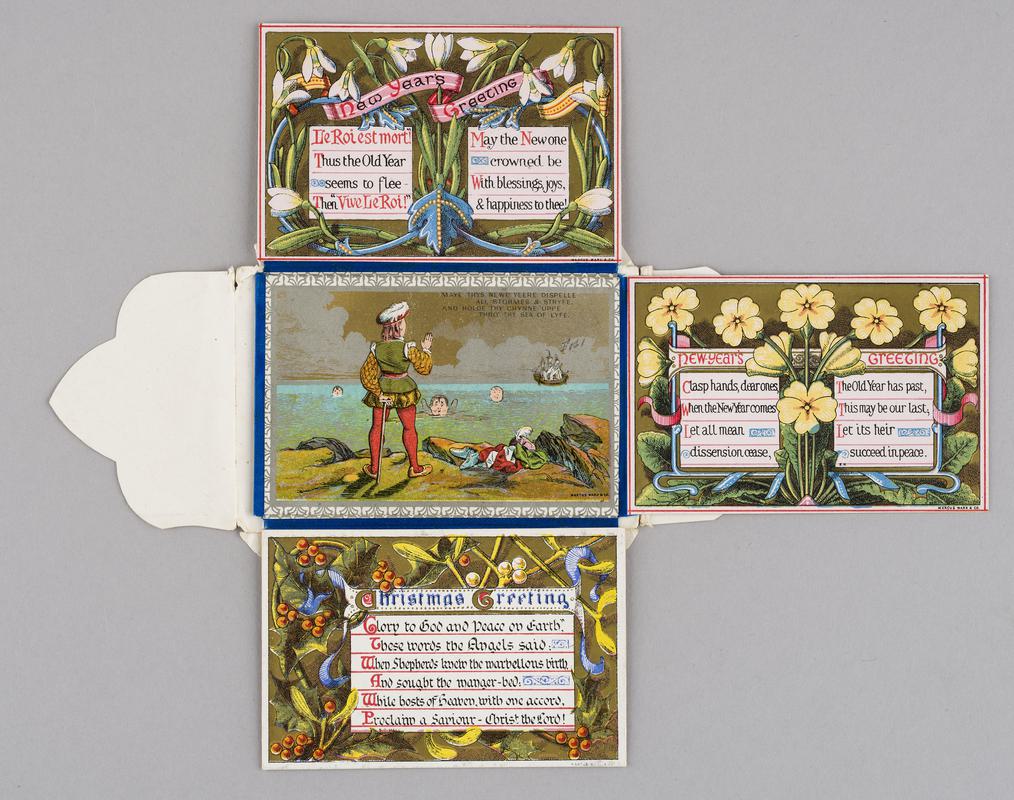 New Year's Greeting
Le Roi est mort!
Thus the Old Year
seems to flee -
Then "Vive Le Roi!"
May the New one
crowned be
With blessings, joys,
& happiness to thee!
MARCUS WARD & CO.
MAYE THYS NEWE YEERE DISPELLE
ALL STORMES & STRYFE,
AND HOLDE THY CHYNNE UPPE
THRO' THE SEA OF LYFE.
MARCUS WARD & CO.
NEW-YEAR'S GREETING
Clasp hands, dear ones,
When the New Year comes
Let all mean
dissension cease,
The Old Year has past,
This may be our last;
Let its heir
succeed in peace.
MARCUS WARD & CO.
Christmas Greeting
Glory to God and Peace on Earth"
These words the Angels said;
When Shepherds knew the marvellous birth,
And sought the manger-bed;
While hosts of Heaven, with one accord,
Proclaim a Saviour - Christ the Lord!